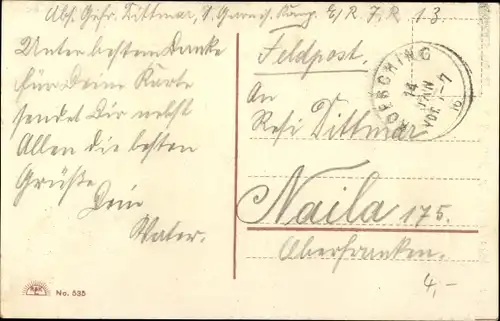 Abs. Gefr. Dittmar, 2. Garnis. Komp. E/R. J. R. 13.
Unter bestem Danke
für Deine Karte
sendet Dir nebst
Allen die besten
Grüße
Dein
Vater.
Feldpost.
An
Resi Dittmar
Naila 175.
Oberfranken.
POERSCHING
14
VOR. 7
4,-
No. 535